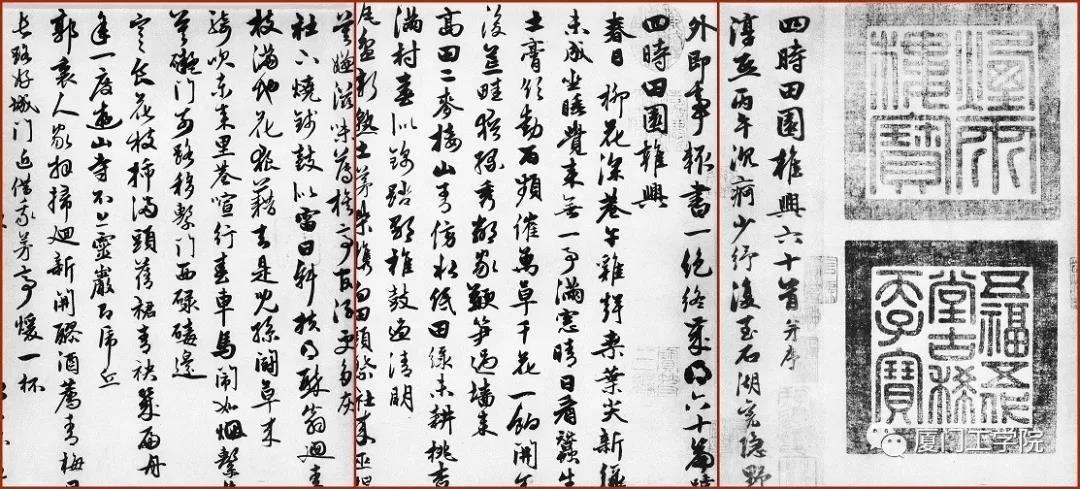 四時田園雜興六十首 并序
淳熙丙午沉疴少紓復至石湖舊隱野
外即事輒書一絕終歲得六十篇號
四時田園雜興
春日 柳花深巷午雞聲桑葉尖新綠
未成坐睡覺來無一事滿窓晴日看蠶生
土膏欲動雨頻催萬草千花一餉開舍
後荒畦猶綠秀鄰家鞭筍過墻來
高田二麥接山青傍水低田綠未耕桃杏
滿村春似錦踏歌椎鼓過清明
盆初熟杜茅柴攜向田頭祭社來巫媼
莫嫌滋味薄旗亭官酒更多灰
社下燒錢鼓似雷日斜扶得醉翁迴青
枝滿地花狼藉知是兒孫鬭草來
騎吹東來里巷喧行春車馬鬧如烟繫牛
莫礙門前路移繫門西碌碡邊
寒食花枝插滿頭蒨裙青袂幾扁舟
年一度遊山寺不上靈巖即虎丘
郭裏人家拜掃迴新開醪酒薦青梅日
長路好城門近借我茅亭暖一杯
五福五代
堂古稀
天子寶
厦门工学院